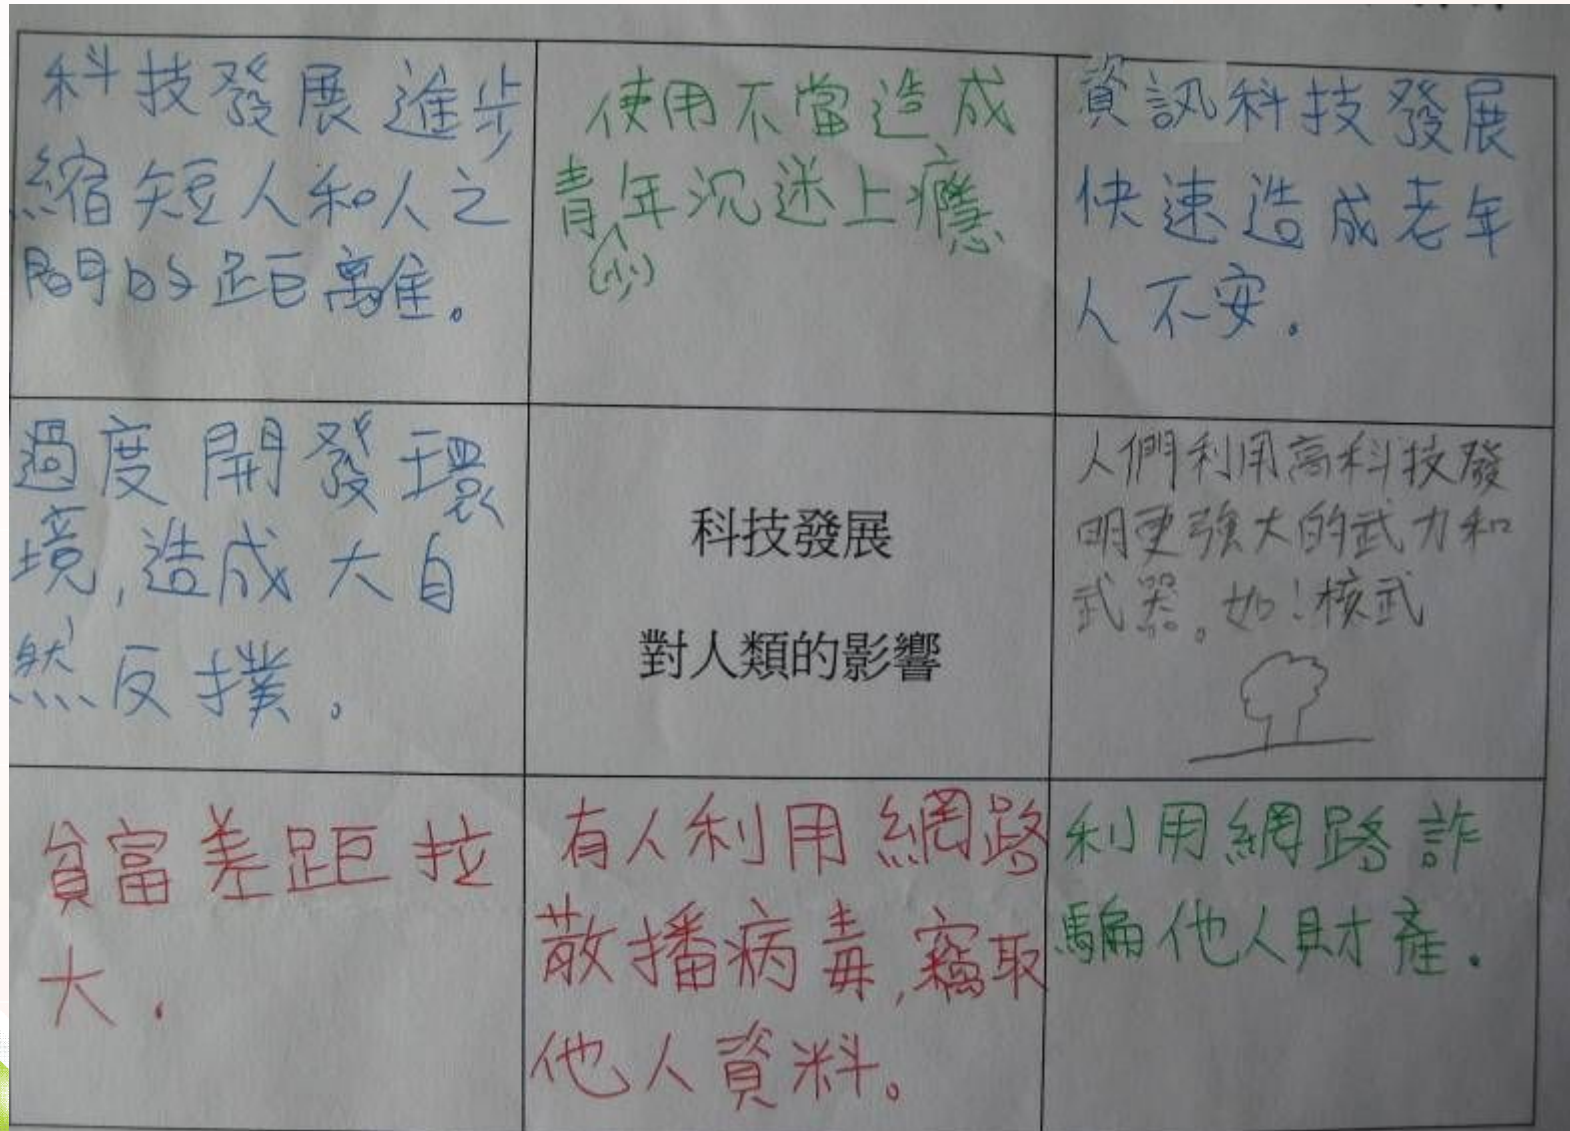 科技發展進步
縮短人和人之
間的距離。
使用不當造成
青(少)年沉迷上癮
資訊科技發展
快速造成老年
人不安。
過度開發環
境,造成大自
然反撲。
科技發展
對人類的影響
人們利用高科技發
明更強大的武力和
武器。如:核武
貧富差距拉
大.
有人利用網路
散播病毒,竊取
他人資料。
利用網路詐
騙他人財產.